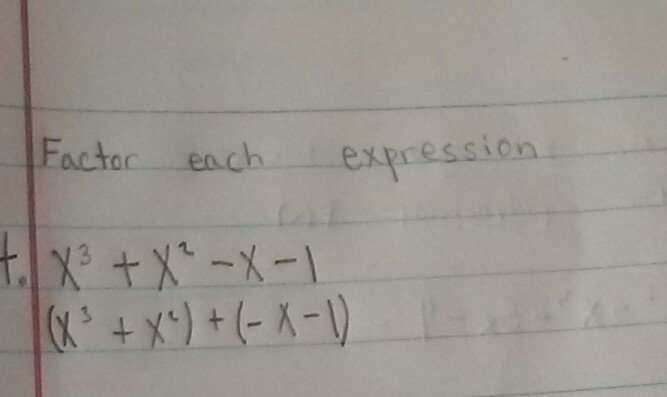 Factor each expression
t. x³ + x² - x - 1
(x³ + x²) + (- x - 1)